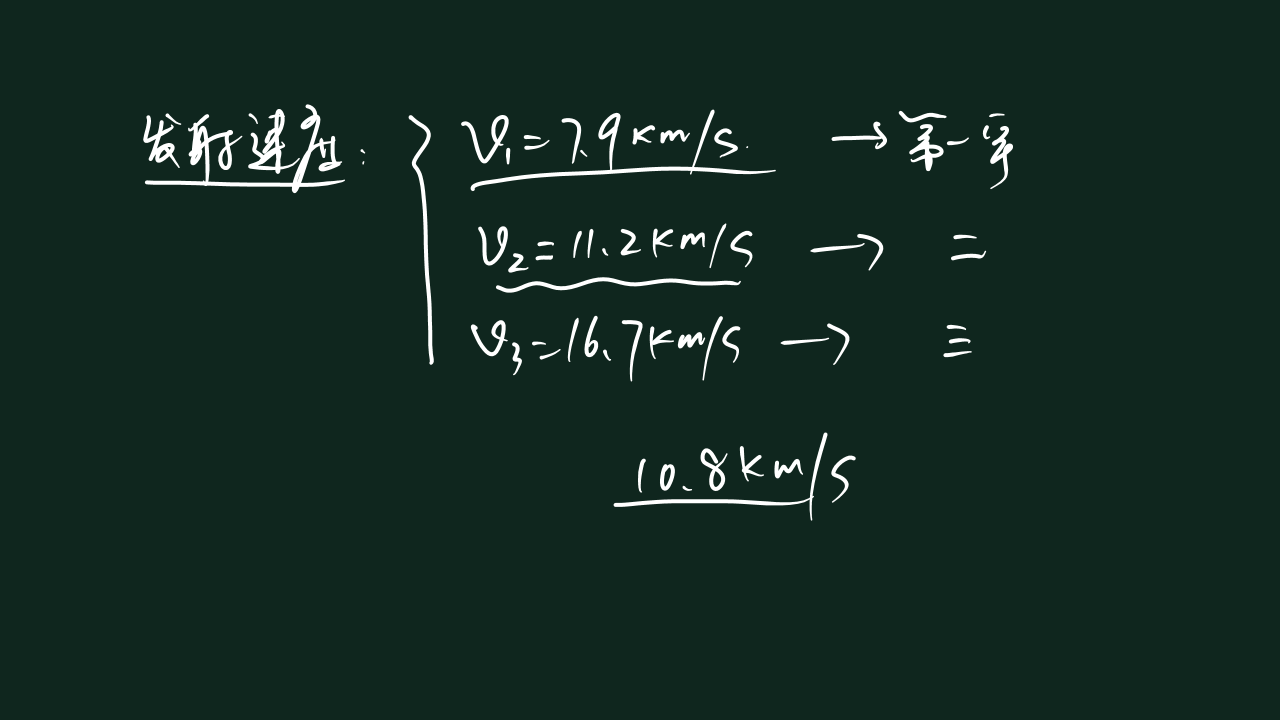 发射速度：
v₁=7.9km/s. → 第一宇
v₂=11.2km/s → 二
v₃=16.7km/s → 三
10.8km/s